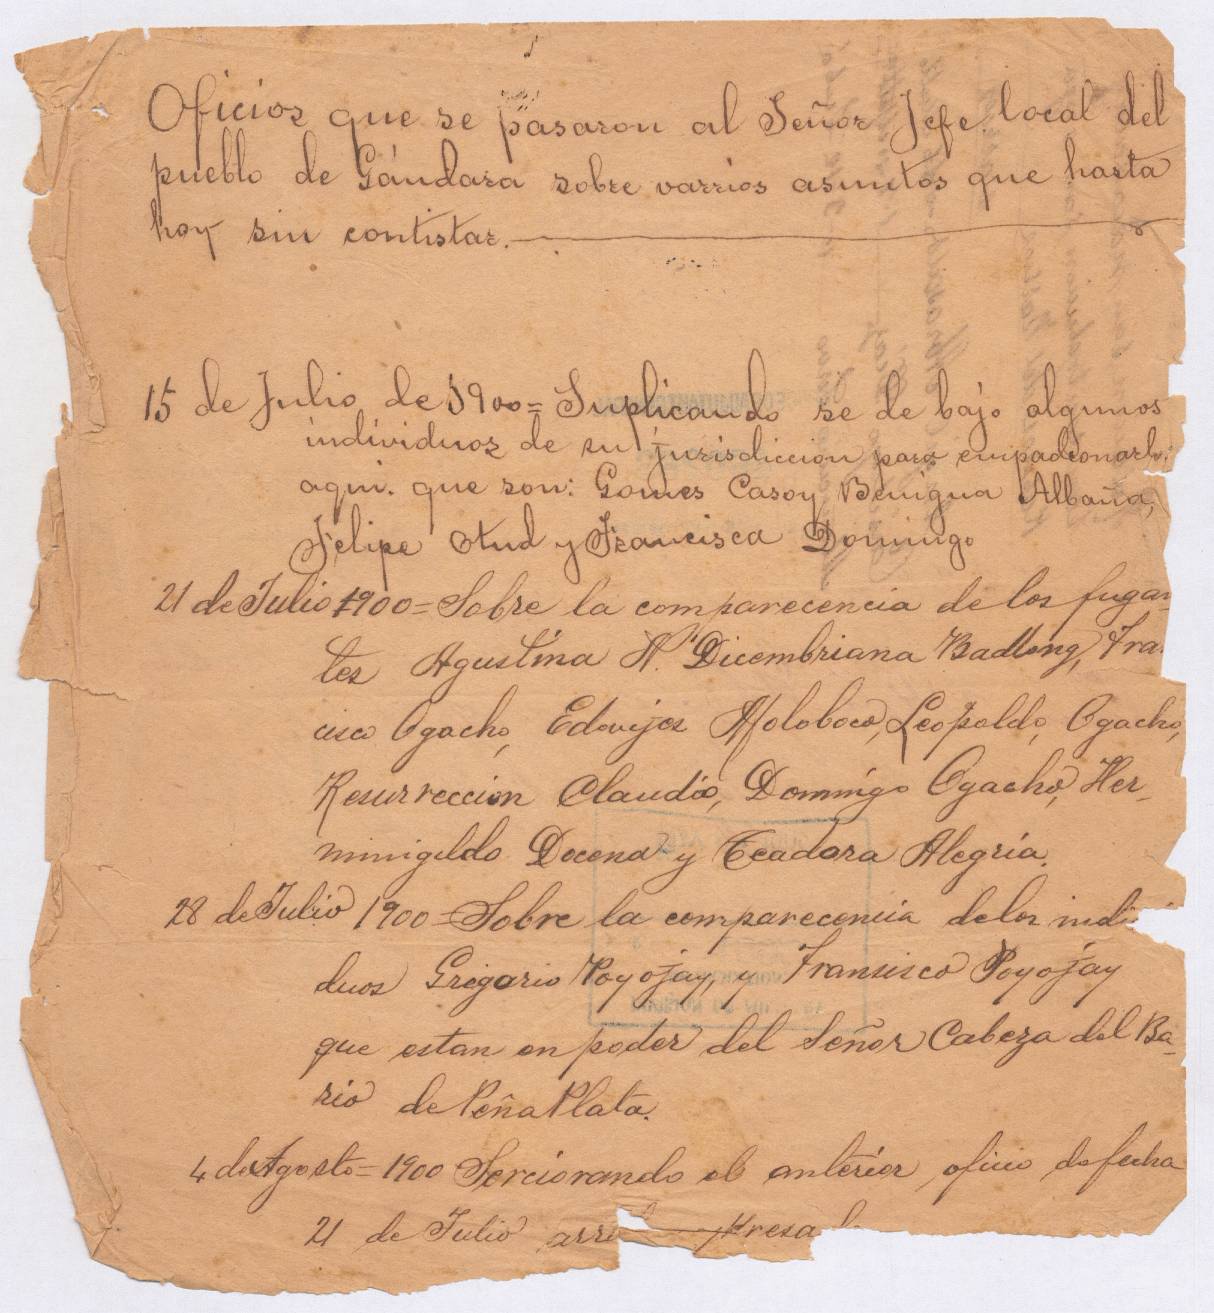 Oficios que se pasaron al Señor Jefe local del
pueblo de Gándara sobre varrios asuntos que hasta
hoy sin contistar.
15 de Julio de 1900 = Suplicando se de bajo algunos
individuos de su jurisdiccion para empadronarlos
aqui. que son: Gomes Casoy Benigna Albaña,
Felipe Otud y Francisca Domingo
21 de Julio 1900 = Sobre la comparecencia de los fugan-
tes Agustína A. Dicembriana Badlong, Fra
cisco Ogacho, Eduvijes Moloboco, Leopoldo, Ogacho,
Resurreccion Claudio, Domíngo Ogacho, Her-
minigeldo Docena y Teadora Alegría.
28 de Julio 1900 = Sobre la comparecencia delos indi
duos Grigario Poyojay, y Fransisco Poyojay
que estan en poder del Señor Cabeza del Ba-
rio de Peña Plata.
4 de Agosto = 1900 Serciorando el anterior, oficio de fecha
21 de Julio arri presa